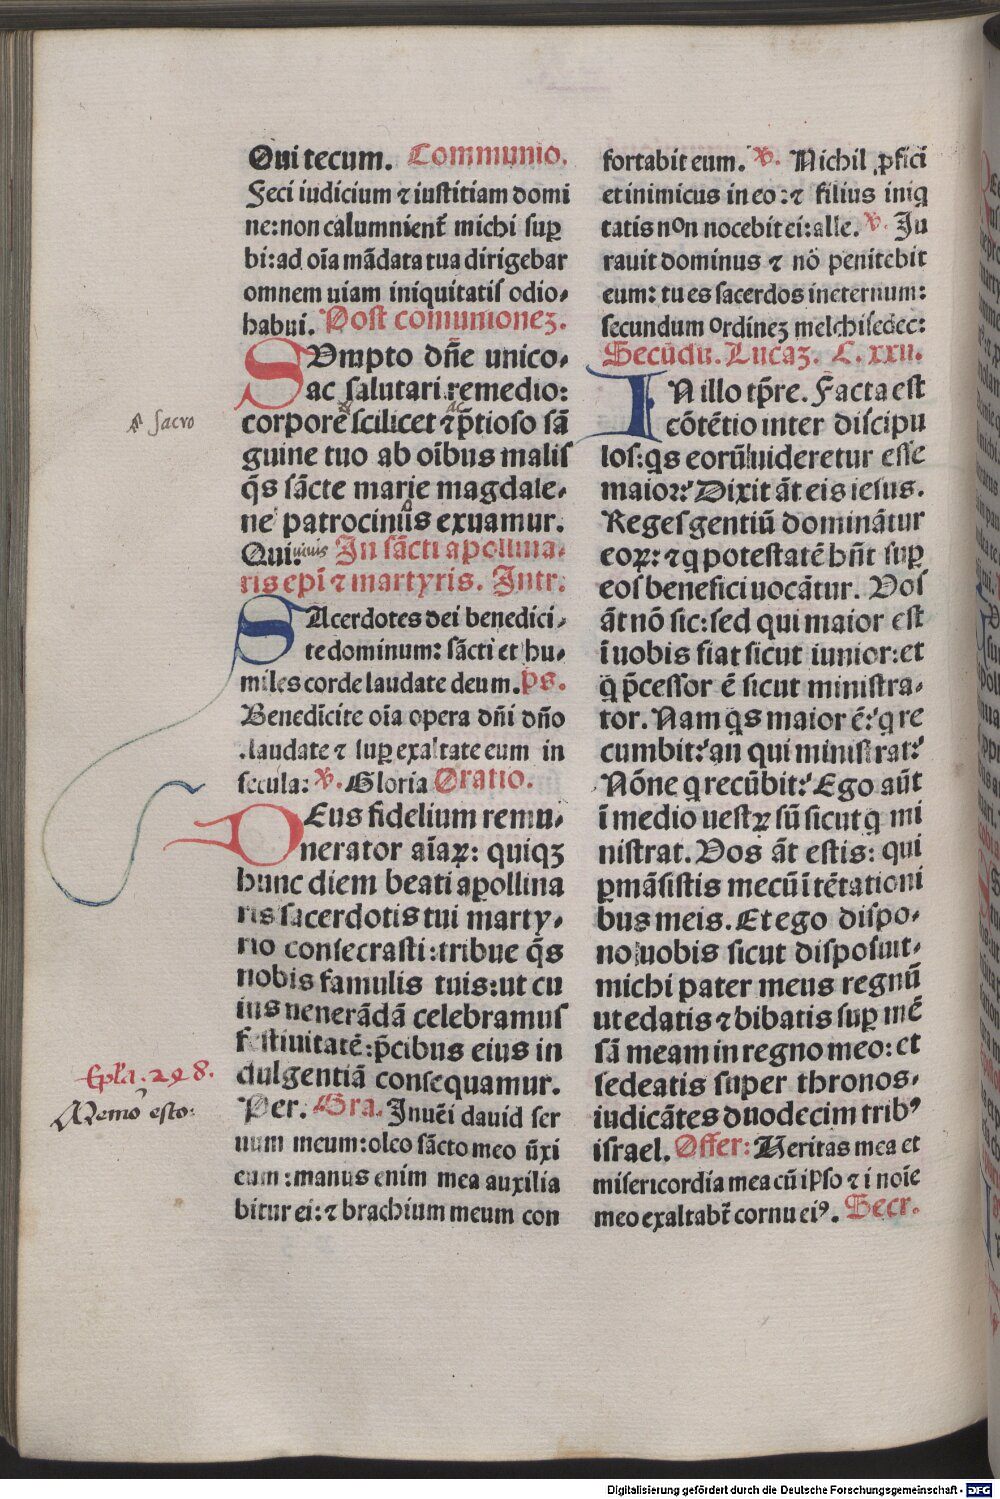 Qui tecum. Communio.
Feci iudicium ⁊ iustitiam domi
ne: non calumnient̄ michi suꝑ
bi: ad oīa mādata tua dirigebar
omnem uiam iniquitatis odio-
habui. Post comunioneꝫ.
SVmpto dn̄e unico-
ac salutari remedio:
corpore scilicet ⁊ p̄tioso sā
sacro
guine tuo ab oībus malis
q̄s sācte marie magdale-
ne patrociniis exuamur.
Qui uiuis In sācti apollina-
ris epī ⁊ martyris. Intr.
SAcerdotes dei benedici-
te dominum: sācti et hu-
miles corde laudate deum. ps.
Benedicite oīa opera dn̄i dn̄o
laudate ⁊ suꝑ exaltate eum in
secula: ℣. Gloria Oratio.
DEus fidelium remu-
nerator aīaꝝ: quiqꝫ
hunc diem beati apollina
ris sacerdotis tui marty-
rio consecrasti: tribue q̄s
nobis famulis tuis: ut cu
ius uenerādā celebramus
festiuitatē: p̄cibus eius in
dulgentiā consequamur.
Epl'a. 298.
Memo esto:
Per. Gra. Inuēi dauid ser
uum meum: oleo sācto meo ūxi
eum: manus enim mea auxilia
bitur ei: ⁊ brachium meum con
fortabit eum. ℣. Nichil ꝓfici
et inimicus in eo: ⁊ filius iniq
tatis non nocebit ei: alle. ℣. Iu
rauit dominus ⁊ nō penitebit
eum: tu es sacerdos in eternum:
secundum ordineꝫ melchisedec:
Secūdu. Lucaꝫ. C. xxii.
IN illo tp̄re. Facta est
cōtētio inter discipu
los: qs eorū uideretur esse
maior: Dixit āt eis iesus.
Reges gentiū dominātur
eoꝝ: ⁊ q potestatē hn̄t suꝑ
eos benefici uocātur. Vos
āt nō sic: sed qui maior est
ī uobis fiat sicut iunior: et
q̄ p̄cessor ē sicut ministra-
tor. Nam qs maior ē: q re
cumbit: an qui ministrat:
Nōne q recūbit: Ego aūt
ī medio uestꝝ sū sicut q mi
nistrat. Vos āt estis: qui
ꝑmāsistis mecū ī tētationi
bus meis. Et ego dispo-
no uobis sicut disposuit-
michi pater meus regnū
ut edatis ⁊ bibatis suꝑ mē
sā meam in regno meo: et
sedeatis super thronos-
iudicātes duodecim tribꝰ
israel. Offer: Veritas mea et
misericordia mea cū ip̄so ⁊ i noīe
meo exaltabt̄ cornu eiꝰ. Secr.
Digitalisierung gefördert durch die Deutsche Forschungsgemeinschaft - DFG